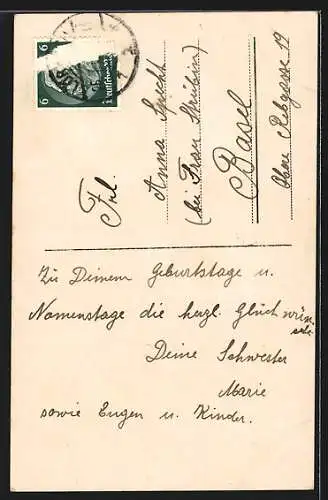 6 6
Deutsches Reich
Frl.
Anna Specht
(bei Frau Stübin)
Basel
Obere Rebgasse 19
Zu Deinem Geburtstage u.
Namenstage die herzl. Glückwün
sche
Deine Schwester
Marie
sowie Eugen u. Kinder.